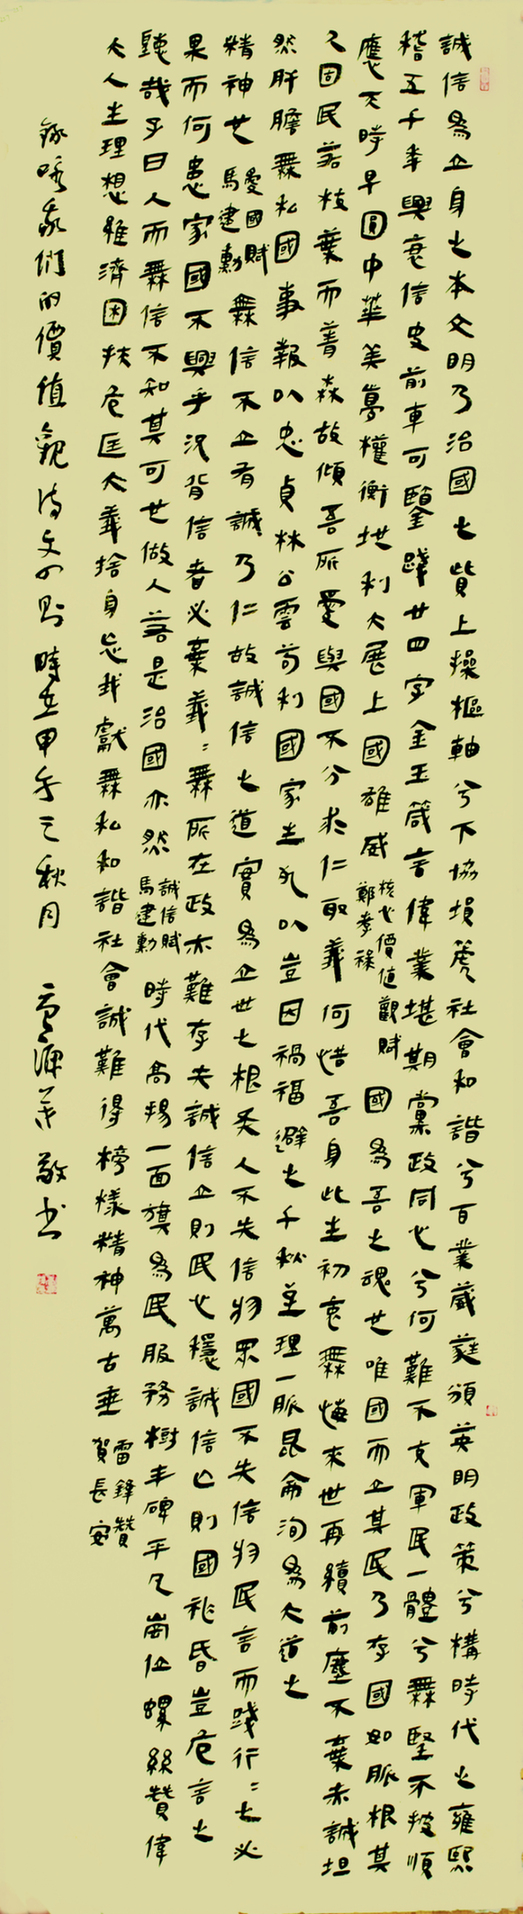 誠信爲立身之本文明乃治國之貲上操樞軸兮下協塤篪社會和諧兮百業葳蕤頒英明政策兮構時代之雍熙
稽五千年興衰信史前車可鑒踐廿四字金玉箴言偉業堪期黨政同心兮何難不克軍民一體兮無堅不披順
應天時早圓中華美夢權衡地利大展上國雄威 核心價值觀賦 鄭孝祿 國爲吾之魂也唯國而立其民乃存國如脈根其
固民若枝葉而菁森故傾吾所愛與國不分求仁取義何惜吾身此生初衷無悔來世再續前塵不棄赤誠坦
然肝膽無私國事報以忠貞林公雲苟利國家生死以豈因禍福避之千秋至理一脈昆侖洵爲大道之
精神也 愛國賦 馬建勳 無信不立有誠乃仁故誠信之道實爲立世之根矣人不失信將眾國不失信將民言而踐行二之必
果而何患家國不興乎況背信者必棄義二無所在政亦難存夫誠信立則民心穩誠信亡則國祚昏豈危言之
聽哉子曰人而無信不知其可也做人若是治國亦然 誠信賦 馬建勳 時代高揚一面旗爲民服務樹豐碑平凡崗位螺絲贊偉
大人生理想雄濟困扶危匡大義捨身忘我獻無私和諧社會誠難得榜樣精神萬古垂 雷鋒贊 賀長安
我們的價值觀詩文四則時在甲午之秋月 敬書